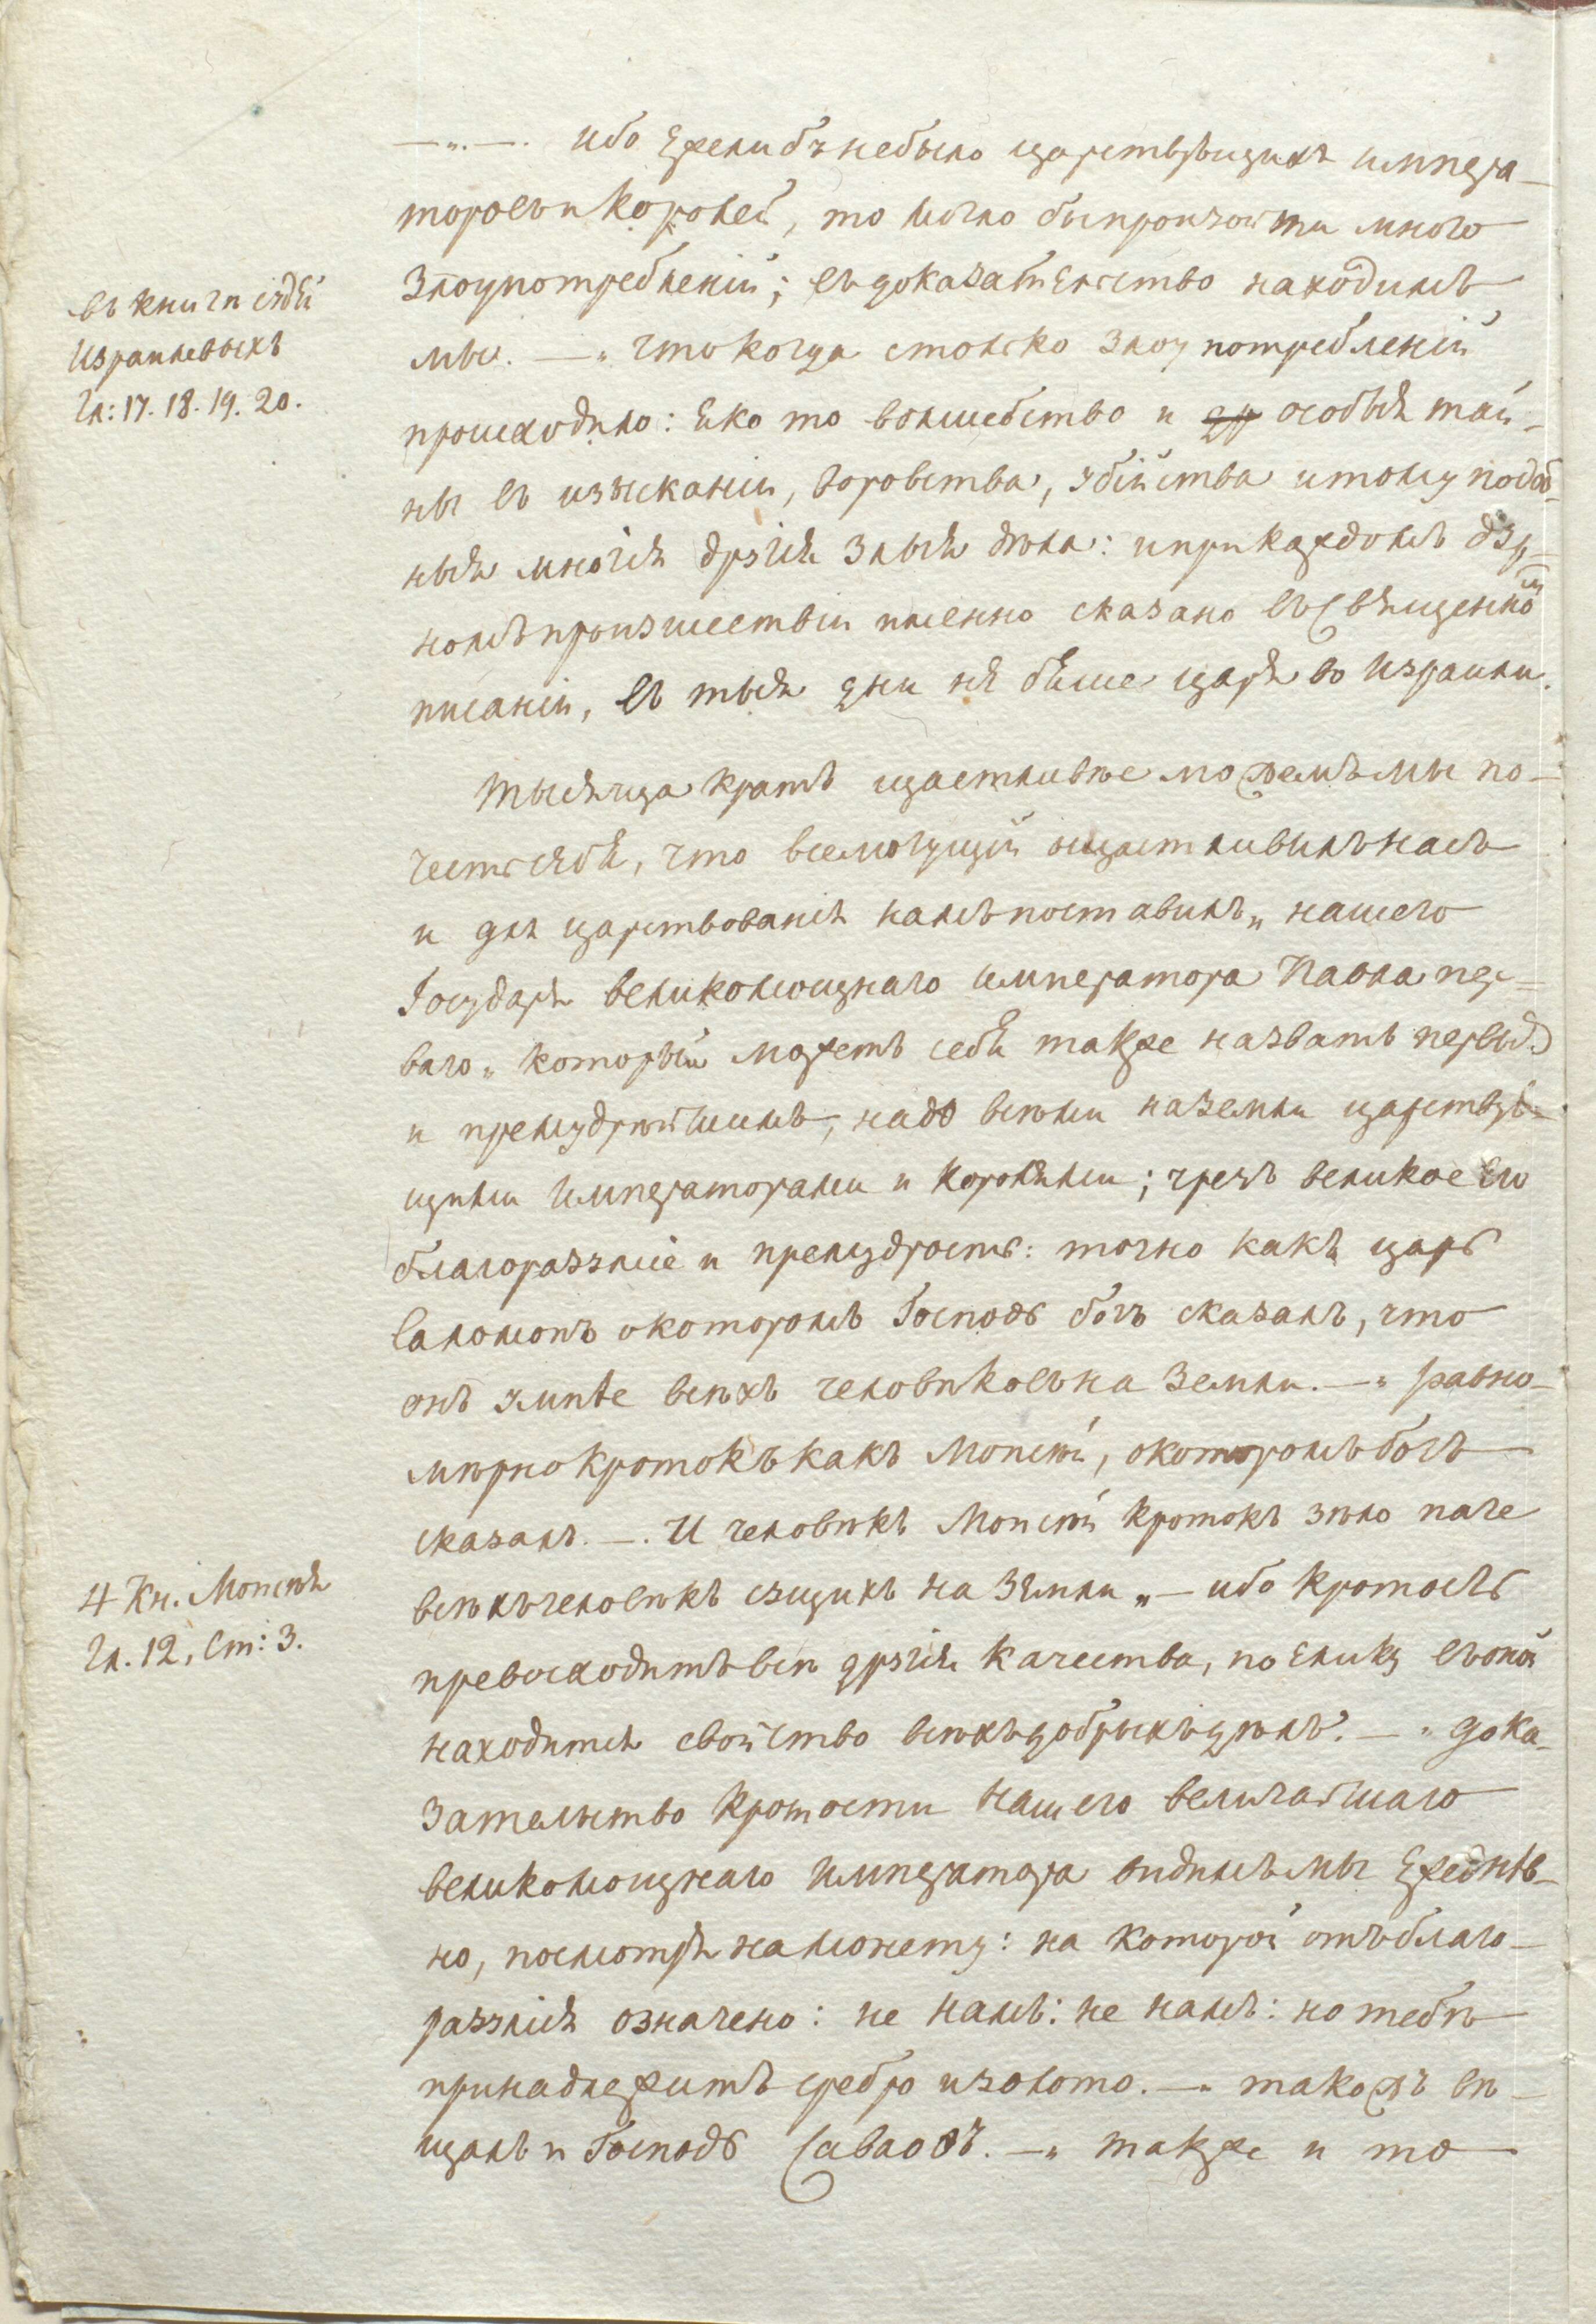 —„.—. ибо Ежели бъ небыло царствꙋющихъ импера-
торовъ и королей, то могло бы произойти много
Злоупотребленій; въ доказательство находимъ
въ книгѣ судей
Израилевыхъ
Гл: 17. 18. 19. 20.
мы. —„ что когда столько Злоупотребленій
происходило: яко то волшебство и особыя тай-
ны въ изысканіи, воровства, ꙋбійства и тому подоб-
ныя многія дрꙋгія Злыя дѣла: и при каждомъ дꙋр-
номъ произшествіи имянно сказано въ Священномъ
писаніи, въ тыя дни не бѣше царя во Израили.
Тысяща кратъ щастливѣе можемъ мы по-
честь себя, что всемогущій ощастливилъ насъ
и для царствованія намъ поставилъ „ нашего
Государя великомощнаго императора Павла пер-
ваго „ который можетъ себя также назвать первымъ
и премудрѣйшимъ, надо всѣми на земли царствꙋю-
щими Императорами и королями; чрезъ великое Его
благоразꙋміе и премудрость: точно какъ царь
Саломонъ о которомъ Господь богъ сказалъ, что
онъ ꙋмнѣе всѣхъ человѣковъ на Земли. —„ равно-
мѣрно кротокъ какъ Моисей, о которомъ богъ
сказалъ. —. И человѣкъ Моисей кротокъ зѣло паче
4 Кн. Моисея
Гл. 12, Ст: 3.
всѣхъ человѣкъ сꙋщихъ на Земли „— ибо кротость
превосходитъ всѣ дрꙋгія качества, по Еликꙋ въ оной
находится свойство всѣхъ добрыхъ дѣлъ. —„ дока-
зательство кротости нашего величайшаго
великомощнаго императора видимъ мы Ежеднев-
но, посмотря на монету: на которой отъ благо-
разꙋмія означено: не намъ: не намъ: но тебѣ
принадлежитъ сребро и золото. —„ такожъ вѣ-
щалъ и Господь Саваоѳъ. —„ также и то